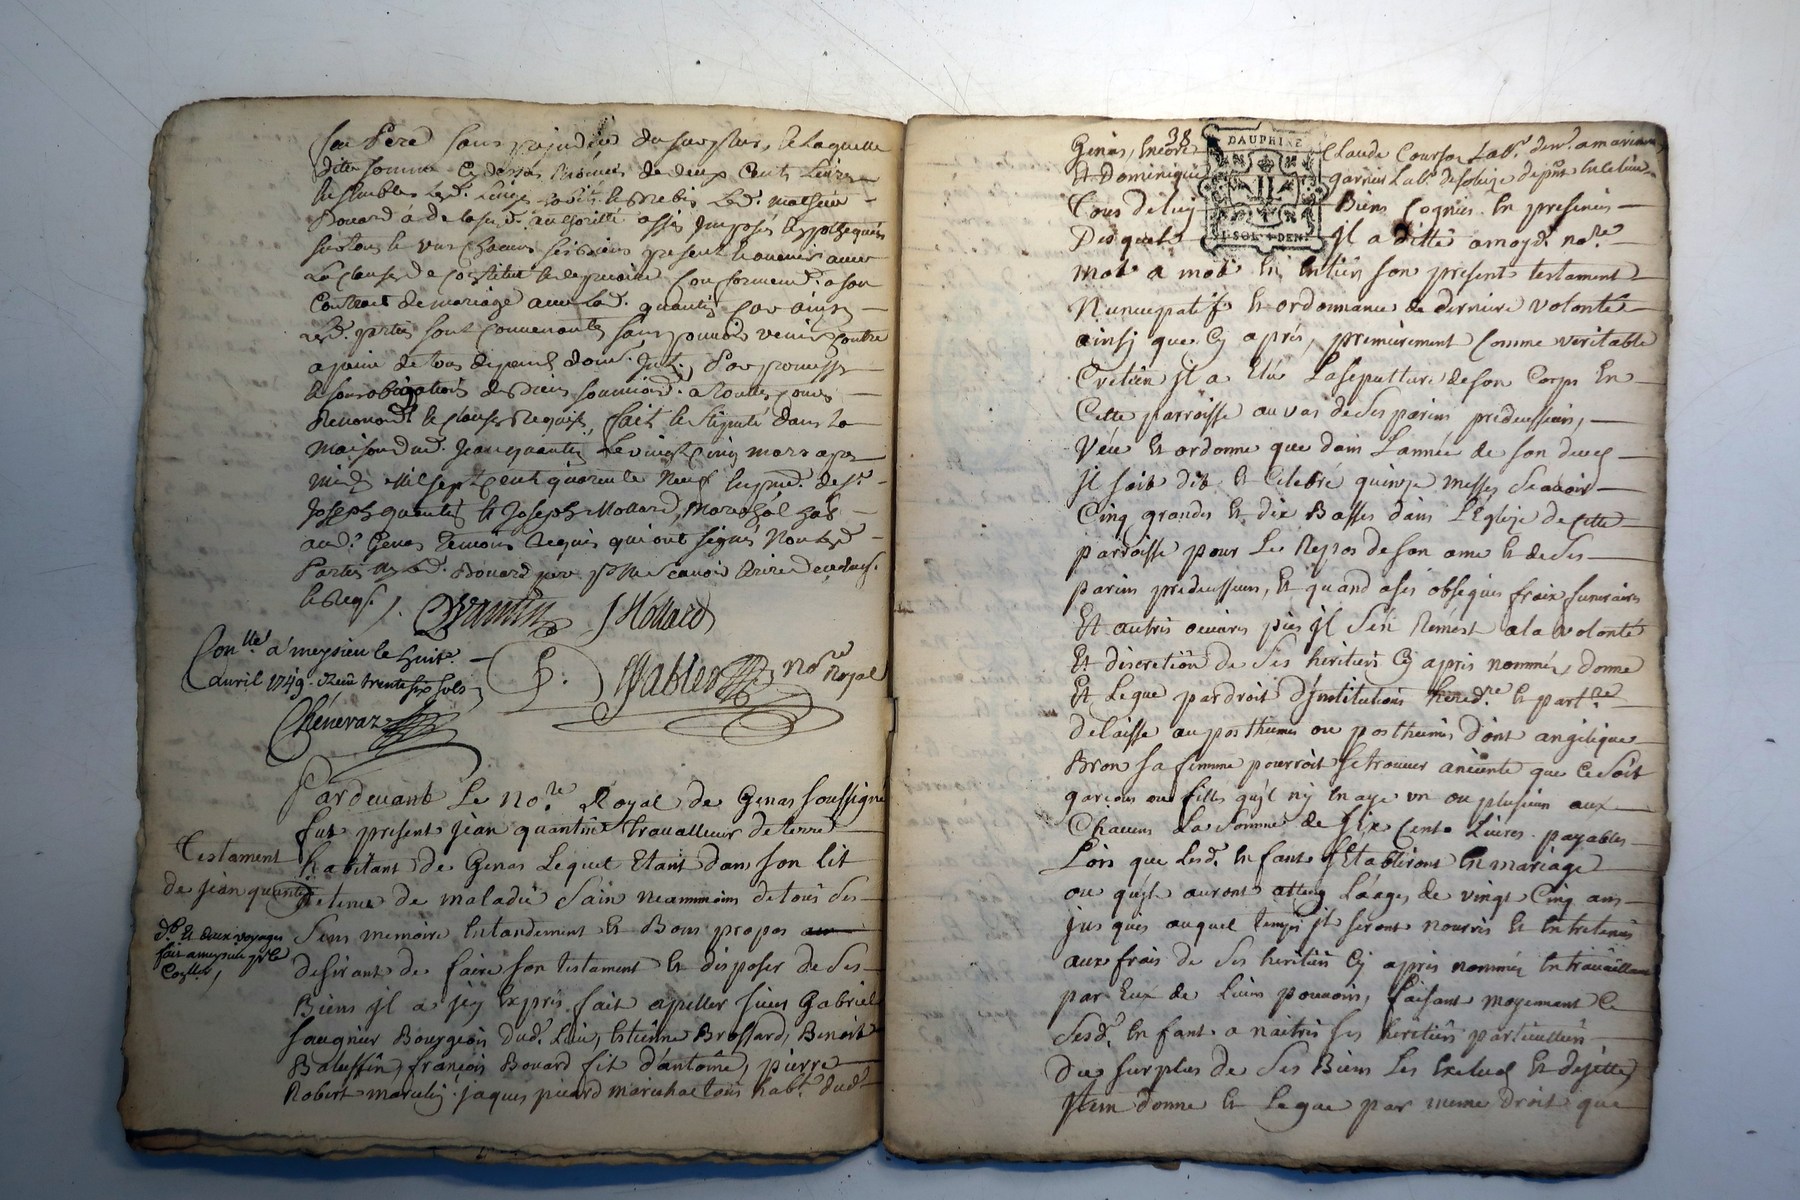 son Pere sans prejudice du surplus, de laquelle
ditte somme de deux Cents Livres
Bouard a de lasud. authorité assis Imposés et ypothequés
sur tous et uns chacuns ses biens present et avenir avec
La clause de Constitut et de precaire Conformem.t a son
Contract de mariage avec lad. quantin Car ainsy
Lesd. parties sont Convenantes sans pouvoir venir Contre
a peine de tous depends dom. Int., Par promesse
et sous obligations de biens soumiss. a toutes Cours
Renonons. et clauses Requises, fait et stipulé dans la
maison dud. Jean quantin Le vingt Cinq mars apres
midy mil sept Cent quarante Neuf En pnce. de sr
Joseph quantin et Joseph Mollard, Marechal hab
aud. Genas temoins Requis qui ont signés Non Led.
Parties Led. Bouard pere pr ne scavoir Ecrire de ce enquis
et Reqs. /.
Quantin J Mollard
Con.lle a meysieu le huit.
avril 1749. Reçu trente six sols
Chéneraz
no.re Royal
Pardevant Le No.re Royal de Genas soussigné
fut present jean quantin travailleur de terre
Testament
de jean quantin
habitant de Genas Lequel Etant dans son lit
detenu de maladie sain neammoins de tous ses
d.t et deux voyages
fait a meysieu pr le
Co.lle /
sens memoire Entandement et Bons propos
desirant de faire son testament et disposer de ses
Biens jl a jcy Expres fait apeller sieur Gabriel
saugnier Bourgeois dud. Lieu, Estienne Brossard, Benoit
Balussin, françois Bouard fit d'antoine, pierre
Robert marechal, jaques picard marechal tous hab.t dud.t
Genas, Encore 38 Claude Courson Lab.r
DAUPHINE
Et Dominique garnier Lab.r de
Tous de luy Biens Cognus. En presences
SOL DEN
Desquels jl a ditté a moyd. no.re
mot a mot En Entier son present testament
Nuncupatif et ordonnance de derniere volonté
ainsj que Cy apres, premierement Comme veritable
Cretien jl a Elu La sepulture de son Corps En
Cette parroisse au vas de ses parens predecesseurs,
Veu et ordonne que dans L'année de son deces
jl soit dit et Celebré quinze messes Scavoir
Cinq grandes et dix Basses dans L'Eglize de Cette
parroisse pour Le Repos de son ame et de ses
parens predecesseurs, Et quand a ses obseques fraix funeraires
Et autres œuvres pies jl s'en Remest a la volonté
Et discretion de ses heritiers Cy apres nommés, donne
Et Legue par droit d'Institutions hered.re et part.re
delaisse au posthume ou posthumes dont angelique
Bron sa femme pourroit se trouver anceinte que ce soit
garçons ou filles qu'il n'y En aye un ou plusieurs aux
Chacuns La somme de six Cents Livres payables
Lors que Lesd. Enfants s'Etabliront En mariage
ou qu'jls auront atteing L'aages de vingt Cinq ans
jusques auquel temps jls seront nourris et Entretenus
aux frais de ses heritiers Cy apres nommés En travaillant
par Eux de Leurs pouvoirs, faisant moyennant Ce
Sesd. Enfant a naitres ses heritiers particulliers
Du surplus de ses Biens Les Exclud Et dejette
jtem donne Et Legue par meme droit que